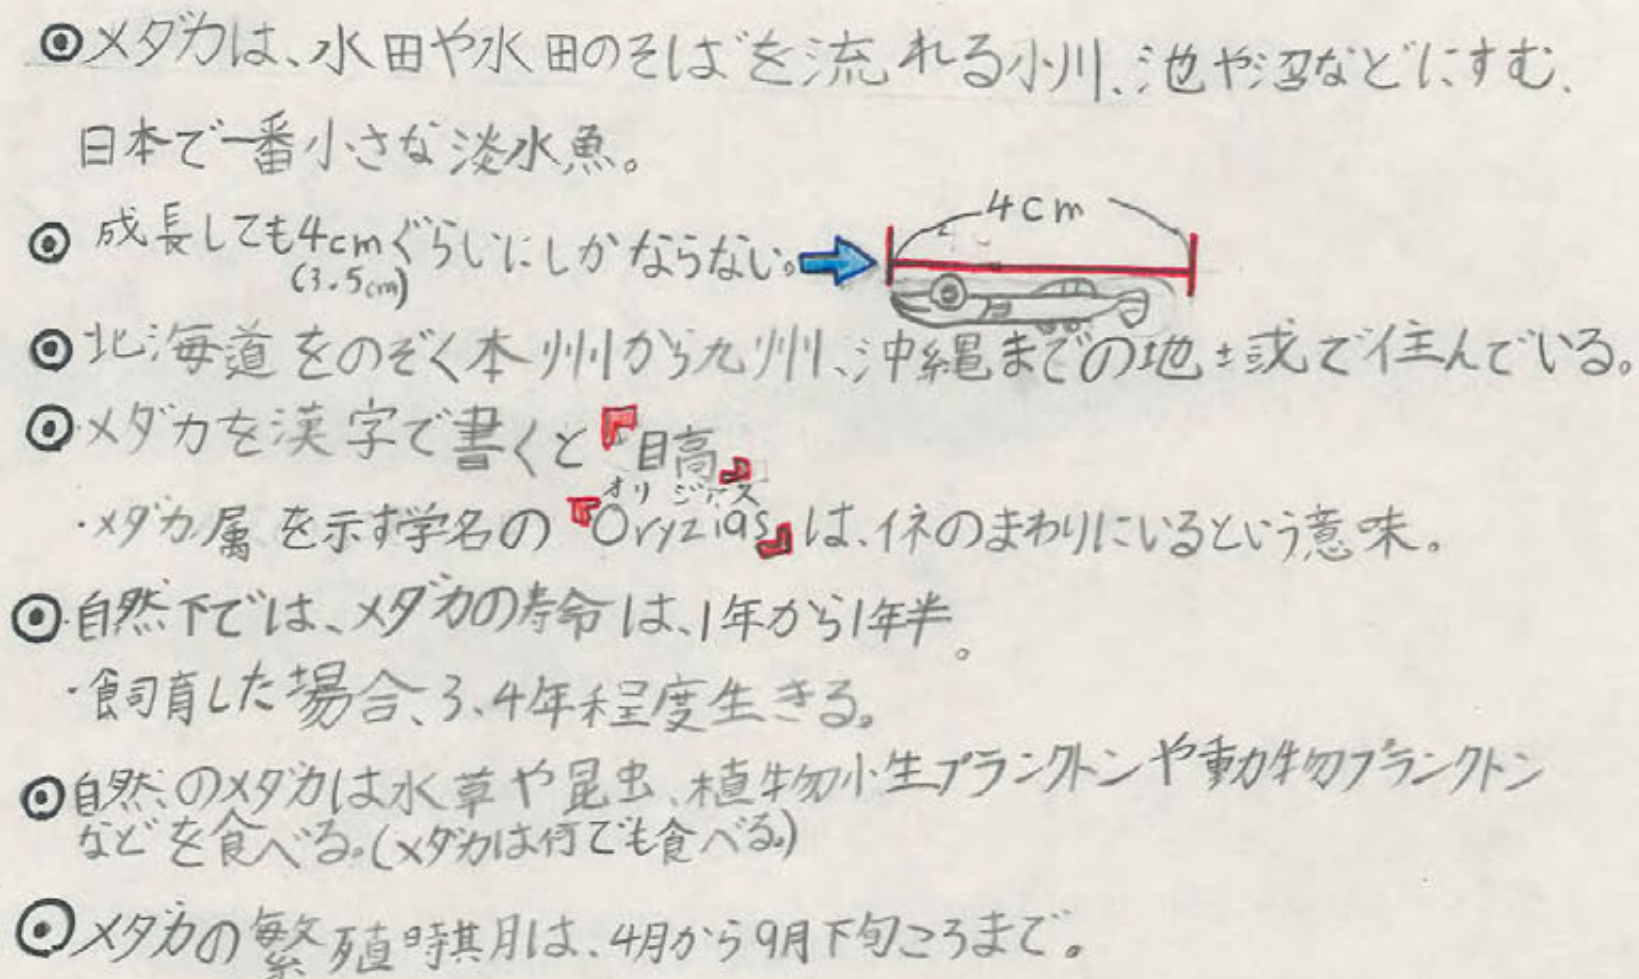 ◉メダカは、水田や水田のそばを流れる小川、池や沼などにすむ、
日本で一番小さな淡水魚。
◉成長しても4cmぐらいにしかならない。
(3.5cm)
4cm
◉北海道をのぞく本州から九州、沖縄までの地域で住んでいる。
◉メダカを漢字で書くと『目高』
オリジアス
・メダカ属を示す学名の『Oryzias』は、イネのまわりにいるという意味。
◉自然下では、メダカの寿命は、1年から1年半。
・飼育した場合、3、4年程度生きる。
◉自然のメダカは水草や昆虫、植物小生プランクトンや動物プランクトン
などを食べる。(メダカは何でも食べる。)
◉メダカの繁殖時期は、4月から9月下旬ころまで。